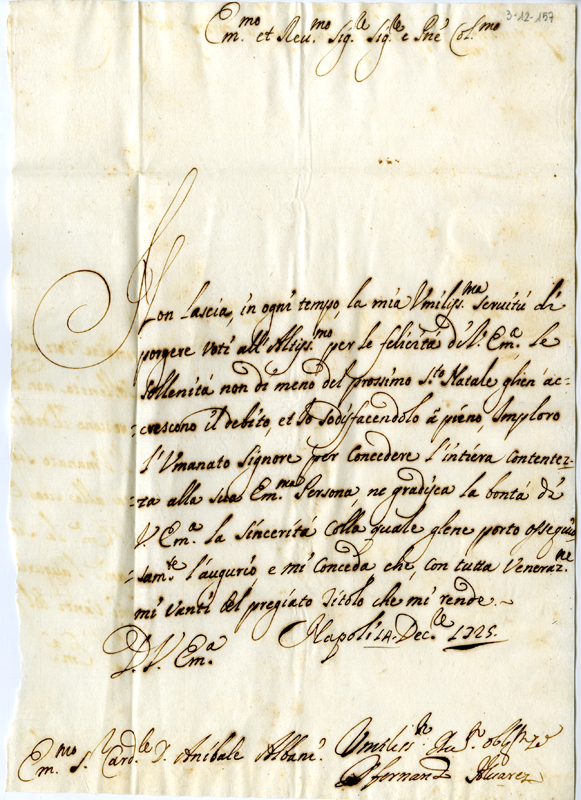 3-12-157
Em.mo et Reu.mo Sig.re Sig.re e Pne Col.mo
Non lascia, in ogni tempo, la mia Vmiliss.ma servitú di
porgere voti all'Altiss.mo per le felicitá di V. Em.a le
sollenitá non di meno del prossimo S.to Natale glien' ac=
=crescono il debito, et Io sodisfacendolo á pieno, Imploro
l'Vmanato Signore per concedere l'intiera contentez=
=za alla sua Em.ma Persona, ne gradisca la bontá di
V. Em.a la sinceritá colla quale glene porto ossequio=
=sam.te l'augurio, e mi Conceda che, con tutta Veneraz.ne
mi vanti del pregiato Titolo che mi rende ~
D. V. Em.a Napoli 14. Dec.re 1725.
Em.mo S. Card.le D. Anibale Albani. Vmiliss.o
D fernand Alvarez